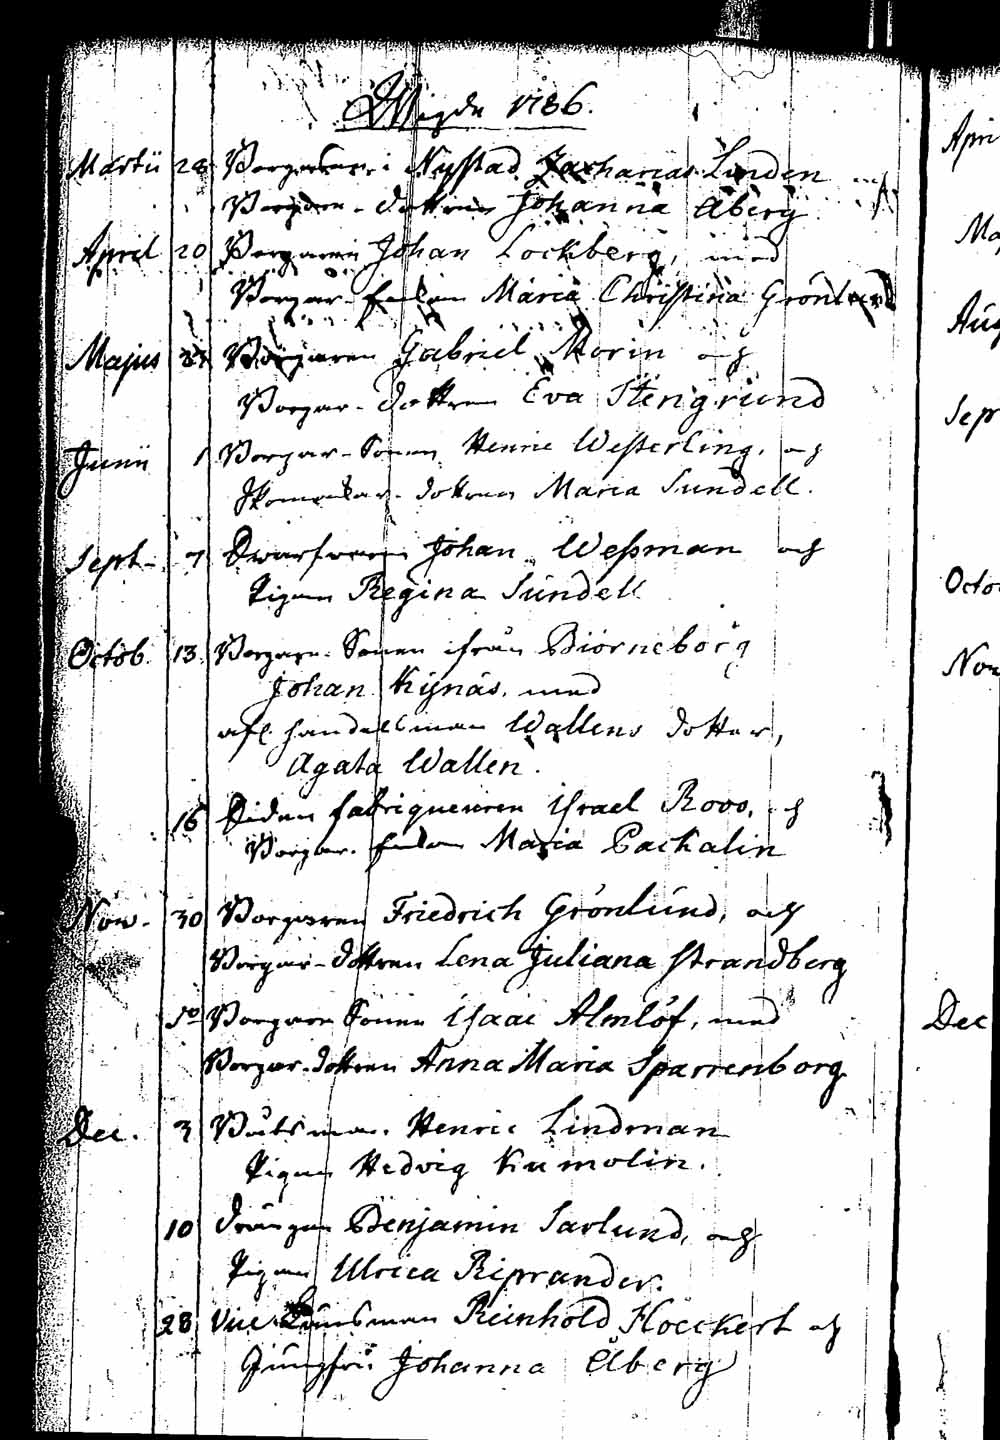 Wigde 1786.
Martii 28 Borgaren i Nystad Zacharias Linden
Borgare-dottren Johanna Åberg
April 20 Borgaren Johan Lockberg, med
Borgar- Maria Christina Grönlund
Majus Borgaren Gabriel Morin och
Borgar-dottren Eva Stengrund
Junii 1 Borgar-Sonen Henric Westerling, och
dottren Maria Sundell.
Sept- 7 Johan Wessman och
Pigan Regina Sundell
Octob. 13. Borgare-Sonen ifrån Biörneborg
Johan Kijnäs, med
afl. handelsman Wallens dotter,
Agata Wallen.
16 fabriqueuren Israel Rovo, och
Borgar- Maria Packalin
Nov- 30 Borgaren Friedrich Grönlund, och
Borgar-dottren Lena Juliana Strandberg
Borgare Sonen Isaac Almlöf, med
Borgar-dottren Anna Maria Sparrenborg
Dec. 3 Båtsman. Henric Lindman
Pigan Hedvig Kumolin.
10 Drängen Benjamin Sarlund, och
Pigan Ulrica Riprander.
28 Vice Länsman Reinhold Floeckert och
Jungfru Johanna Åberg
Apri
Ma
Aug
Sep
Octo
Nov
Dec